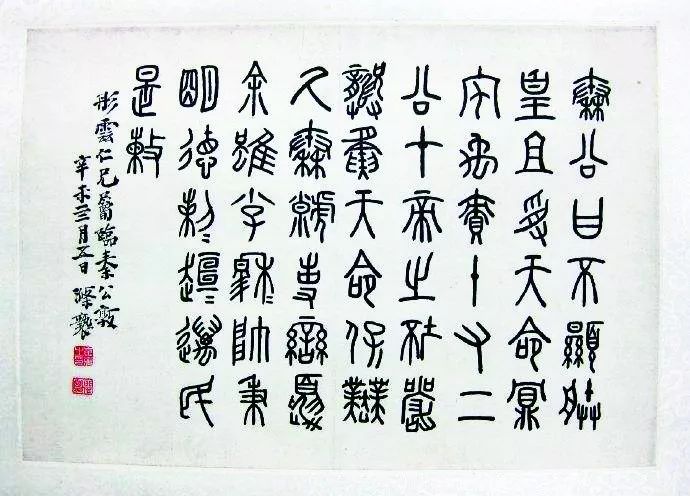 秦公曰不顯朕
皇且受天命鼏
宅禹賣十又二
公才帝之坯嚴
龏夤天命保業
氒秦虩事蠻夏
余雖小子穆穆帥秉
明德剌剌趄趄邁民
是敕
彤雲仁兄屬臨秦公敦
辛未三月五日